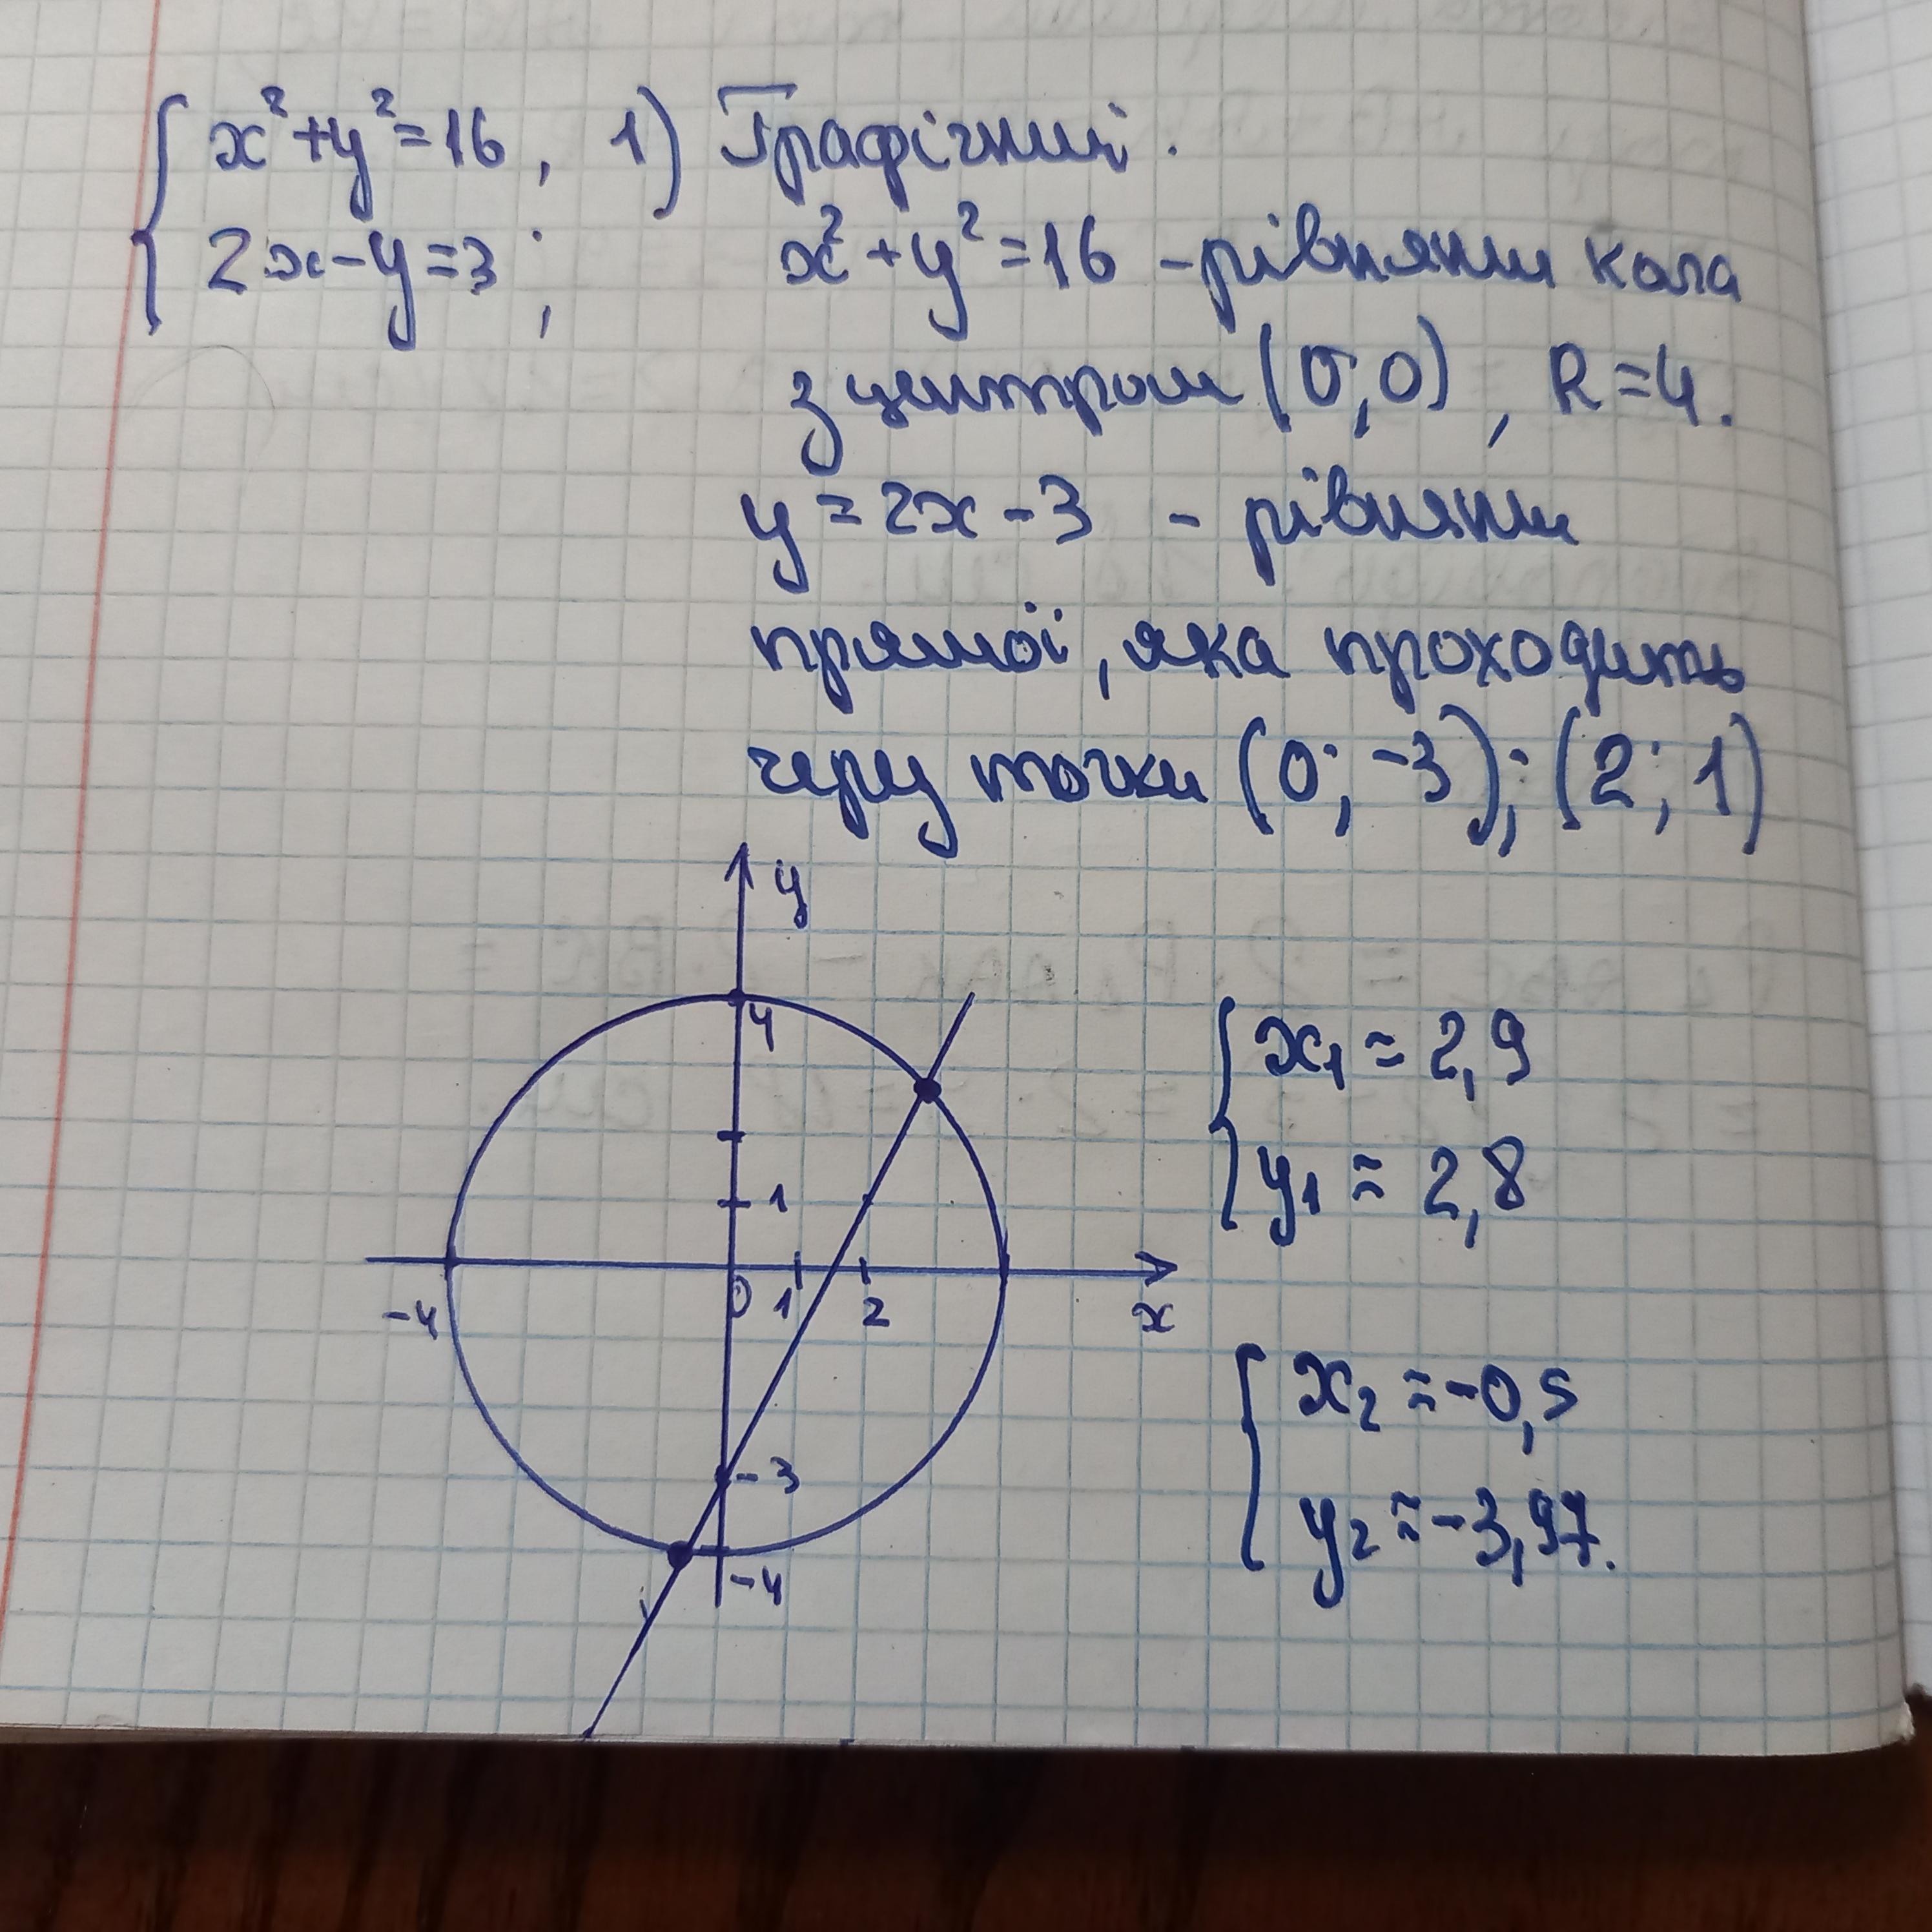 { x²+y²=16, 1) Графічний.
2x-y=3; x²+y²=16 - рівняння кола
з центром (0;0), R=4.
y=2x-3 - рівняння
прямої, яка проходить
через точки (0;-3); (2;1)
y
4
1
-4 0 1 2 x
-3
-4
{ x₁ ≈ 2,9
y₁ ≈ 2,8
{ x₂ ≈ -0,5
y₂ ≈ -3,97.